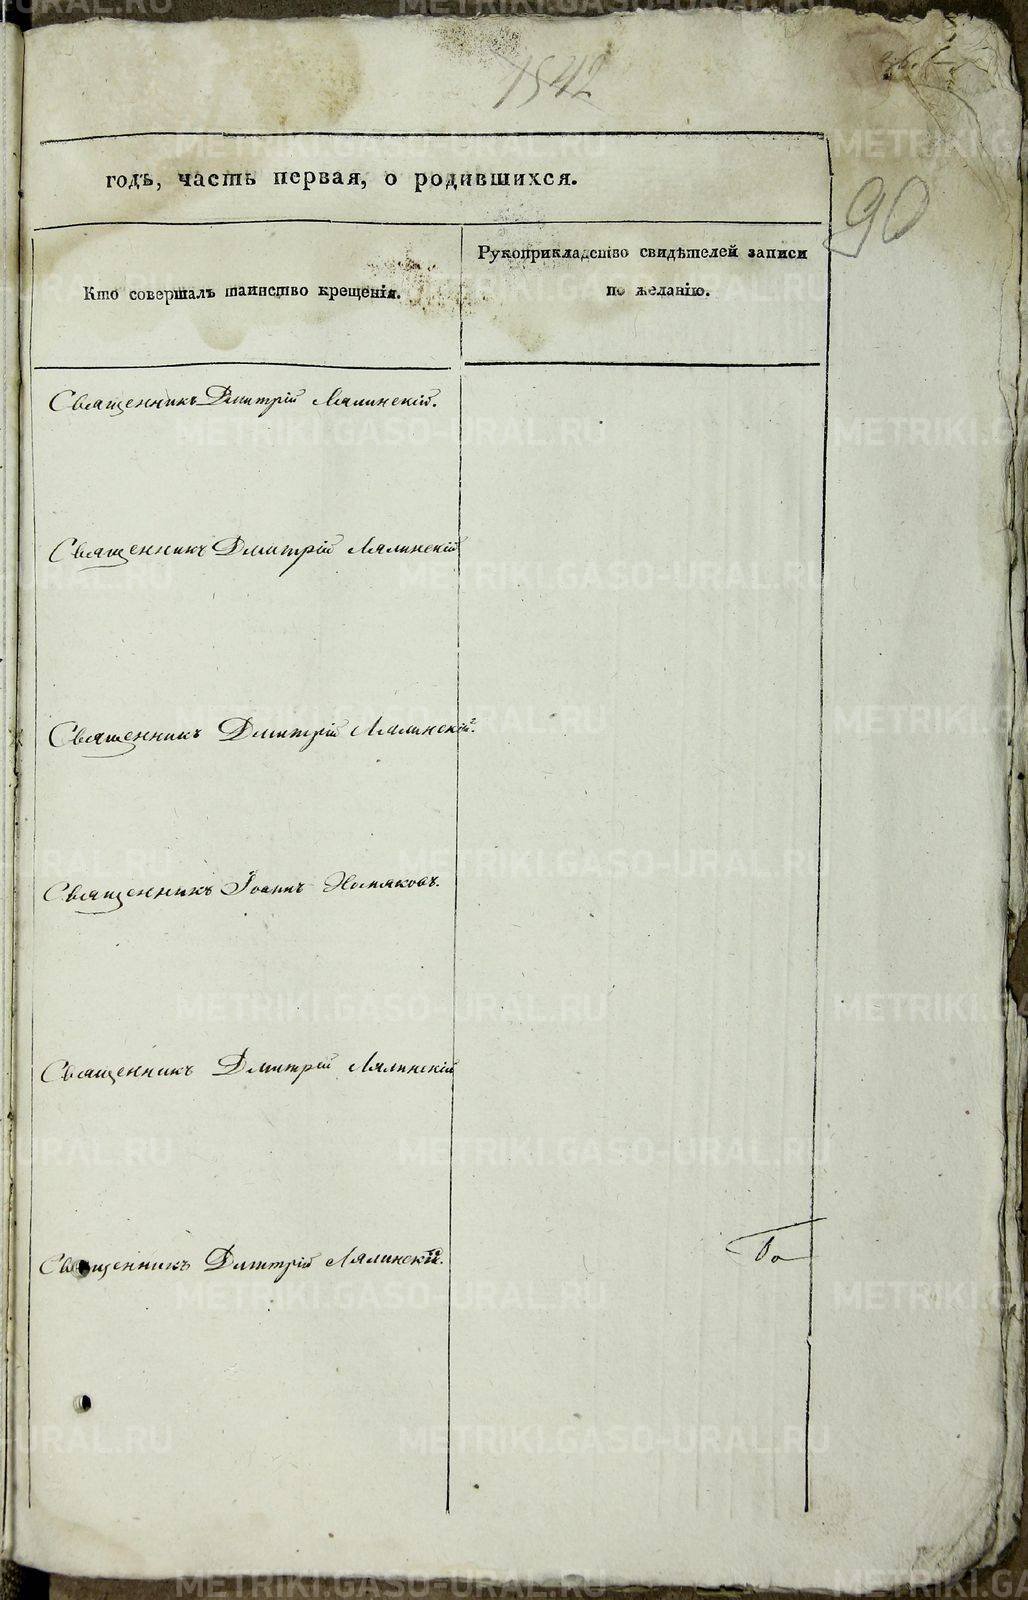 1842
90
годъ, часть первая, о родившихся.
Кто совершалъ таинство крещенія.
Рукоприкладство свидѣтелей записи
по желанію.
Священникъ Дмитрій Лялинскій.
Священникъ Дмитрій Лялинскій
Священникъ Дмитрій Лялинскій.
Священникъ Іоаннъ Хомяковъ.
Священникъ Дмитрій Лялинскій
Священникъ Дмитрій Лялинскій.
METRIKI.GASO-URAL.RU